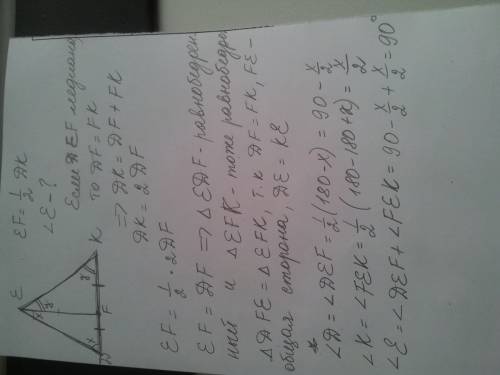 E
x y
x y
D F K
EF = 1/2 DK
∠E - ?
Если EF медиана
то DF = FK
=> DK = DF + FK
DK = 2DF
EF = 1/2 · 2DF
EF = DF => △EDF - равнобедрен
ный и △EFK - тоже равнобедре
△DFE = △EFK, т.к DF = FK, FE -
общая сторона, DE = KE
∠D = ∠DEF = 1/2 (180 - x) = 90 - x/2
∠K = ∠FEK = 1/2 (180 - 180 + x) = x/2
∠E = ∠DEF + ∠FEK = 90 - x/2 + x/2 = 90°